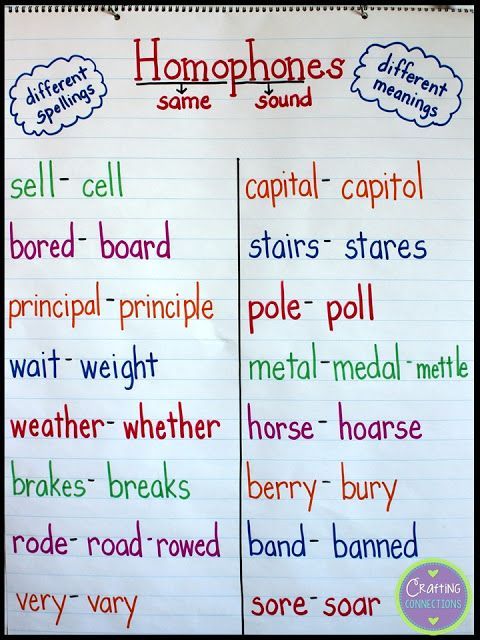 Homophones
same sound
different
spellings
different
meanings
sell - cell
bored - board
principal - principle
wait - weight
weather - whether
brakes - breaks
rode - road - rowed
very - vary
capital - capitol
stairs - stares
pole - poll
metal - medal - mettle
horse - hoarse
berry - bury
band - banned
sore - soar
Crafting
CONNECTIONS